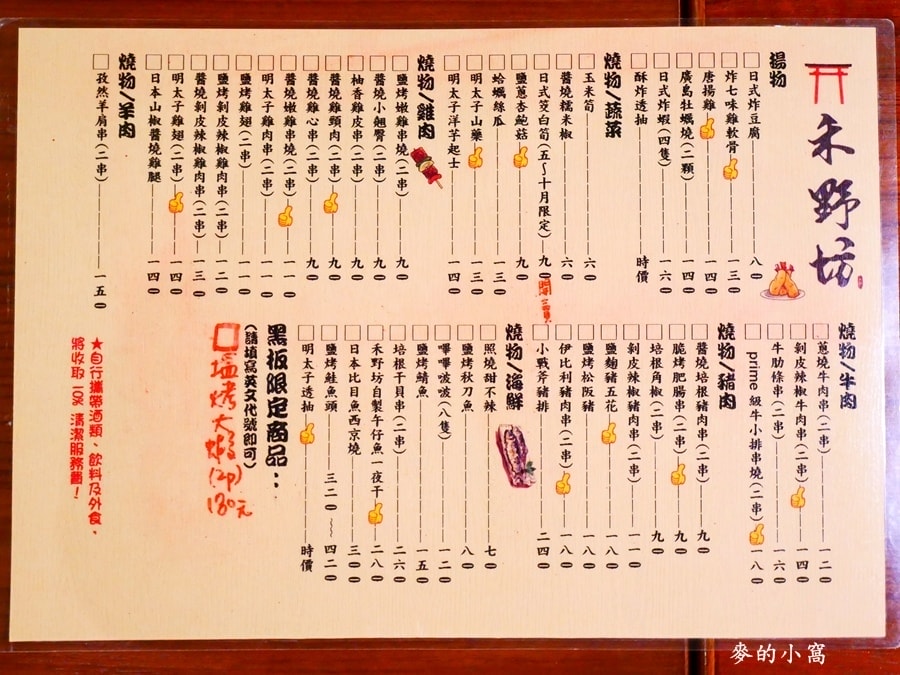 禾野坊
揚物
日式炸豆腐 八0
炸七味雞軟骨 一三0
唐揚雞 一四0
廣島牡蠣燒(二顆) 一四0
日式炸蝦(四隻) 一六0
酥炸透抽 時價
燒物/蔬菜
玉米筍 六0
醬燒糯米椒 六0
日式茭白筍(五~十月限定) 九0
鹽蔥杏鮑菇 九0
蛤蠣絲瓜 一三0
明太子山藥 一三0
明太子洋芋起士 一四0
燒物/雞肉
鹽烤嫩雞串燒(二串) 九0
醬燒小翹臀(二串) 九0
柚香雞皮串(二串) 九0
醬燒雞頸肉(二串) 九0
醬燒雞心串(二串) 九0
醬燒嫩雞串燒(二串) 一一0
明太子雞肉串(二串) 一一0
鹽燒雞翅(二串) 一一0
鹽烤剝皮辣椒雞肉串(二串) 一二0
醬燒剝皮辣椒雞肉串(二串) 一三0
明太子雞翅(二串) 一四0
日本山椒醬燒雞腿 一四0
燒物/羊肉
孜然羊肩串(二串) 一五0
燒物/牛肉
蔥燒牛肉串(二串) 一二0
剝皮辣椒牛肉串(二串) 一四0
牛肋條串(二串) 一六0
prime級牛小排串燒(二串) 一八0
燒物/豬肉
醬燒培根豬肉串(二串) 九0
脆烤肥腸串(二串) 九0
培根角椒(二串) 九0
剝皮辣椒豬肉串(二串) 一一0
鹽麴豬五花 一八0
鹽烤松阪豬 一八0
伊比利豬肉串(二串) 一八0
小戰斧豬排 二四0
燒物/海鮮
照燒甜不辣 七0
鹽烤秋刀魚 八0
嗶嗶啵(八隻) 一二0
鹽烤鯖魚 一五0
培根干貝串(二串) 二六0
禾野坊自製午仔魚一夜干 二八0
日本比目魚西京燒 三00
鹽烤鮭魚頭 三二0~四二0
明太子透抽 時價
黑板限定商品:
(請填寫英文代號即可)
塩烤大蝦(2P) 180元
★自行攜帶酒類、飲料及外食、
將收取10% 清潔服務費！
麥的小窩